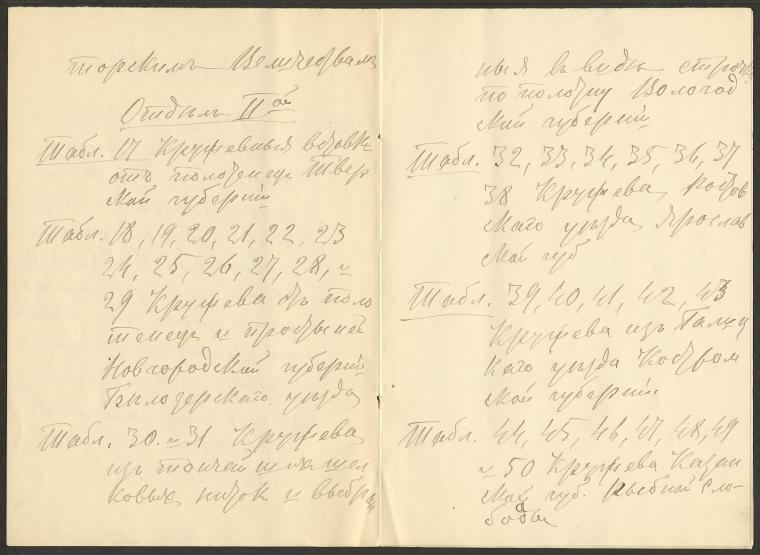 торскимъ Величествамъ
Отдѣлъ IIой
Табл. 17 Кружевныя вставки
отъ полотенецъ Твер
ской губерніи
Табл. 18, 19, 20, 21, 22, 23
24, 25, 26, 27, 28, и
29 Кружева отъ поло
тенецъ и простыней
Новгородской губерніи
Бѣлозерскаго уѣзда
Табл. 30 и 31 Кружева
изъ шел
ковыхъ нитокъ и
ныя въ видѣ строчки
по полотну Вологод
ской губерніи
Табл. 32, 33, 34, 35, 36, 37
38 Кружева Ростов
скаго уѣзда Ярослав
ской губ.
Табл. 39, 40, 41, 42, 43
Кружева изъ Галиц
каго уѣзда Костром
ской губерніи.
Табл. 44, 45, 46, 47, 48, 49
и 50 Кружева Казан
ской губ. Рыбной Сло-
боды